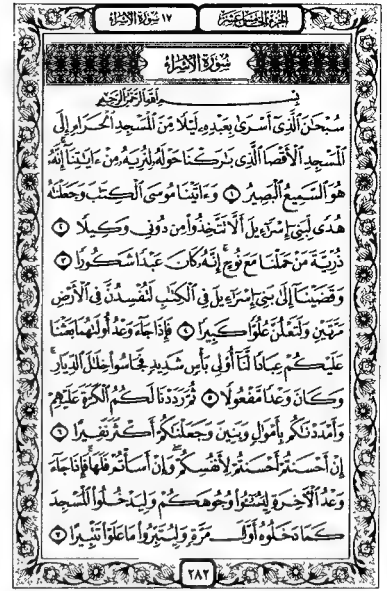 ١٧ سُورَةُ الإِسْرَاءِ
الجُزْءُ الخَامِسَ عَشَرَ
سُورَةُ الإِسْرَاءِ
بِسْمِ اللَّهِ الرَّحْمَٰنِ الرَّحِيمِ
سُبْحَٰنَ ٱلَّذِىٓ أَسْرَىٰ بِعَبْدِهِۦ لَيْلًا مِّنَ ٱلْمَسْجِدِ ٱلْحَرَامِ إِلَى
ٱلْمَسْجِدِ ٱلْأَقْصَا ٱلَّذِى بَٰرَكْنَا حَوْلَهُۥ لِنُرِيَهُۥ مِنْ ءَايَٰتِنَآ إِنَّهُۥ
هُوَ ٱلسَّمِيعُ ٱلْبَصِيرُ ١ وَءَاتَيْنَا مُوسَى ٱلْكِتَٰبَ وَجَعَلْنَٰهُ
هُدًى لِّبَنِىٓ إِسْرَٰٓءِيلَ أَلَّا تَتَّخِذُوا۟ مِن دُونِى وَكِيلًا ٢
ذُرِّيَّةَ مَنْ حَمَلْنَا مَعَ نُوحٍ إِنَّهُۥ كَانَ عَبْدًا شَكُورًا ٣
وَقَضَيْنَآ إِلَىٰ بَنِىٓ إِسْرَٰٓءِيلَ فِى ٱلْكِتَٰبِ لَتُفْسِدُنَّ فِى ٱلْأَرْضِ
مَرَّتَيْنِ وَلَتَعْلُنَّ عُلُوًّا كَبِيرًا ٤ فَإِذَا جَآءَ وَعْدُ أُولَىٰهُمَا بَعَثْنَا
عَلَيْكُمْ عِبَادًا لَّنَآ أُو۟لِى بَأْسٍ شَدِيدٍ فَجَاسُوا۟ خِلَٰلَ ٱلدِّيَارِ
وَكَانَ وَعْدًا مَّفْعُولًا ٥ ثُمَّ رَدَدْنَا لَكُمُ ٱلْكَرَّةَ عَلَيْهِمْ
وَأَمْدَدْنَٰكُم بِأَمْوَٰلٍ وَبَنِينَ وَجَعَلْنَٰكُمْ أَكْثَرَ نَفِيرًا ٦
إِنْ أَحْسَنتُمْ أَحْسَنتُمْ لِأَنفُسِكُمْ وَإِنْ أَسَأْتُمْ فَلَهَا فَإِذَا جَآءَ
وَعْدُ ٱلْءَاخِرَةِ لِيَسُۥٓـُٔوا۟ وُجُوهَكُمْ وَلِيَدْخُلُوا۟ ٱلْمَسْجِدَ
كَمَا دَخَلُوهُ أَوَّلَ مَرَّةٍ وَلِيُتَبِّرُوا۟ مَا عَلَوْا۟ تَتْبِيرًا ٧
٢٨٢